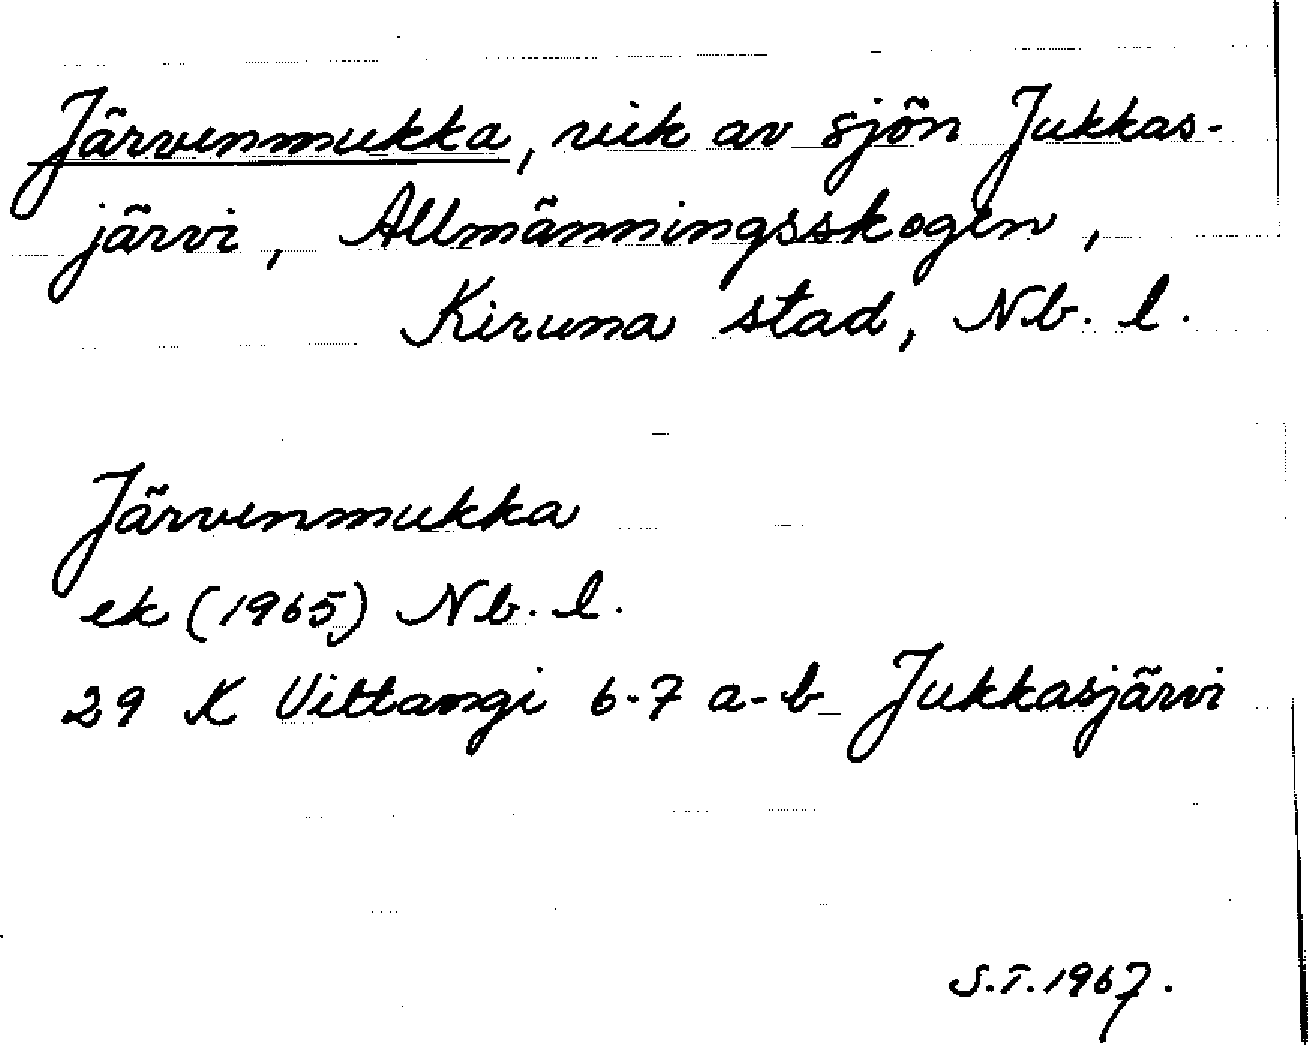 Järvenmukka, vik av sjön Jukkas-
järvi, Allmänningsskogen,
Kiruna stad, Nb. l.
Järvenmukka
ek (1965) Nb. l.
29 K Vittangi 6-7 a-b Jukkasjärvi
S.T. 1967.